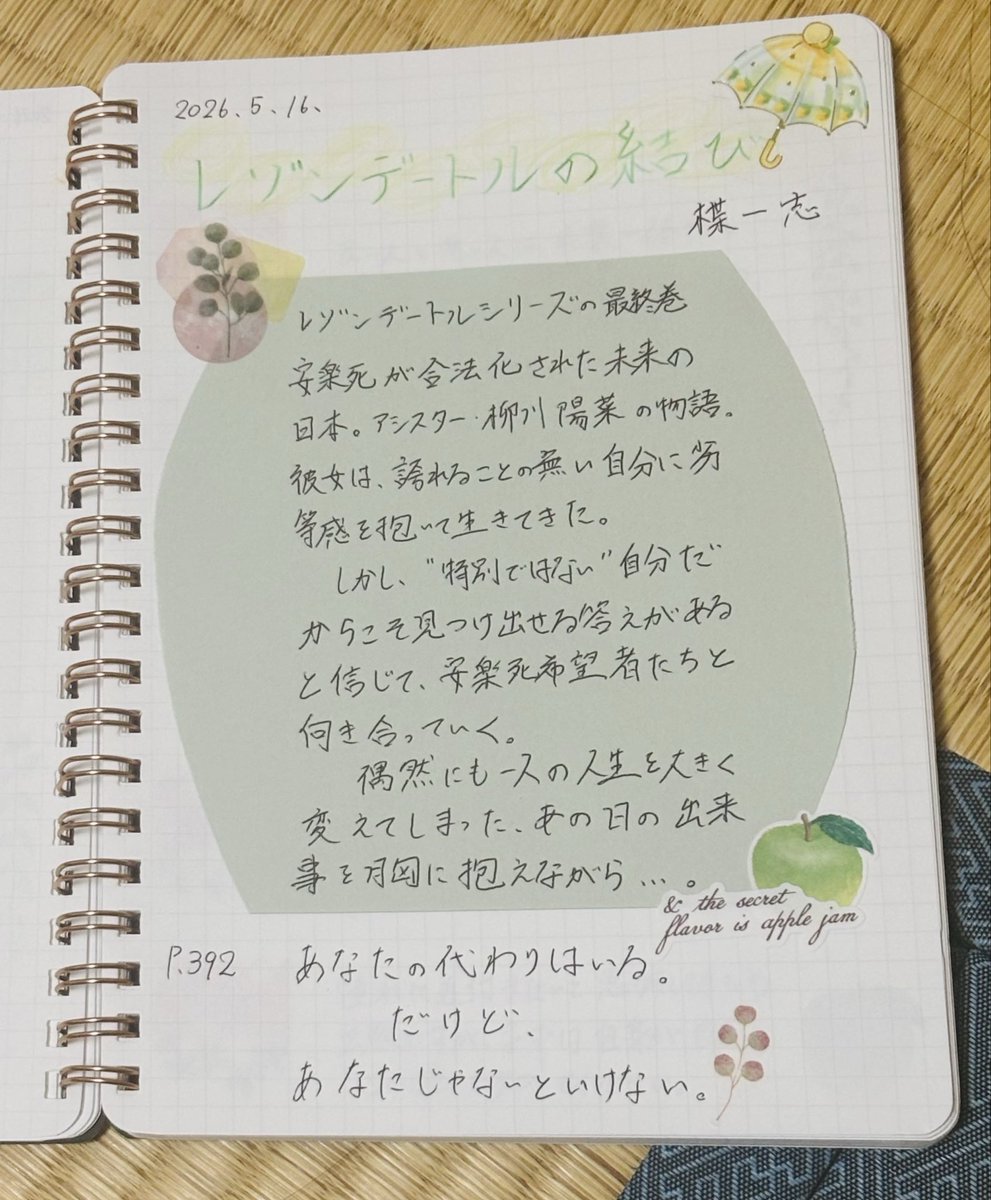 2026.5.16.
レゾンデートルの結び
楪一志
レゾンデートルシリーズの最終巻
安楽死が合法化された未来の
日本。アシスター・柳川陽菜の物語。
彼女は、誇れることの無い自分に劣
等感を抱いて生きてきた。
しかし、"特別ではない"自分だ
からこそ見つけ出せる答えがある
と信じて、安楽死希望者たちと
向き合っていく。
偶然にも一人の人生を大きく
変えてしまった、あの日の出来
事を胸に抱えながら…。
& the secret
flavor is apple jam
P.392 あなたの代わりはいる。
だけど、
あなたじゃないといけない。